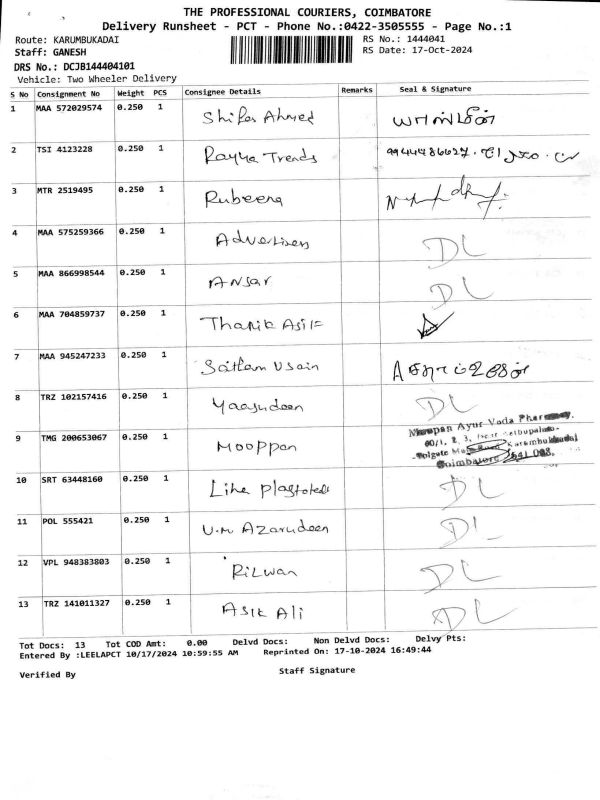 THE PROFESSIONAL COURIERS, COIMBATORE
Delivery Runsheet - PCT - Phone No.:0422-3505555 - Page No.:1
Route: KARUMBUKADAI RS No.: 1444041
Staff: GANESH RS Date: 17-Oct-2024
DRS No.: DCJB144404101
Vehicle: Two Wheeler Delivery
S No Consignment No Weight PCS Consignee Details Remarks Seal & Signature
1 MAA 572029574 0.250 1 Shifa Ahmed
2 TSI 4123228 0.250 1 Rayya Trends 9944486627
3 MTR 2519495 0.250 1 Rubeena
4 MAA 575259366 0.250 1 Advertisers DL
5 MAA 866998544 0.250 1 Ansar DL
6 MAA 704859737 0.250 1 Tharik Asif
7 MAA 945247233 0.250 1 Sattam Usain
8 TRZ 102157416 0.250 1 Yaasudeen DL
9 TMG 200653067 0.250 1 Mooppan Ayur Veda Pharmacy.
Coimbatore 641 008.
10 SRT 63448160 0.250 1 Line DL
11 POL 555421 0.250 1 U.M Azarudeen DL
12 VPL 948383803 0.250 1 Rilwan DL
13 TRZ 141011327 0.250 1 Asik Ali DL
Tot Docs: 13 Tot COD Amt: 0.00 Delvd Docs: Non Delvd Docs: Delvy Pts:
Entered By :LEELAPCT 10/17/2024 10:59:55 AM Reprinted On: 17-10-2024 16:49:44
Verified By Staff Signature